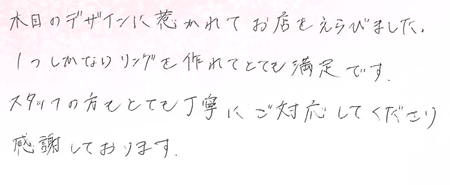 木目のデザインに惹かれてお店をえらびました.
1つしかないリングを作れてとても満足です.
スタッフの方もとても丁寧にご対応してくださり
感謝しております.